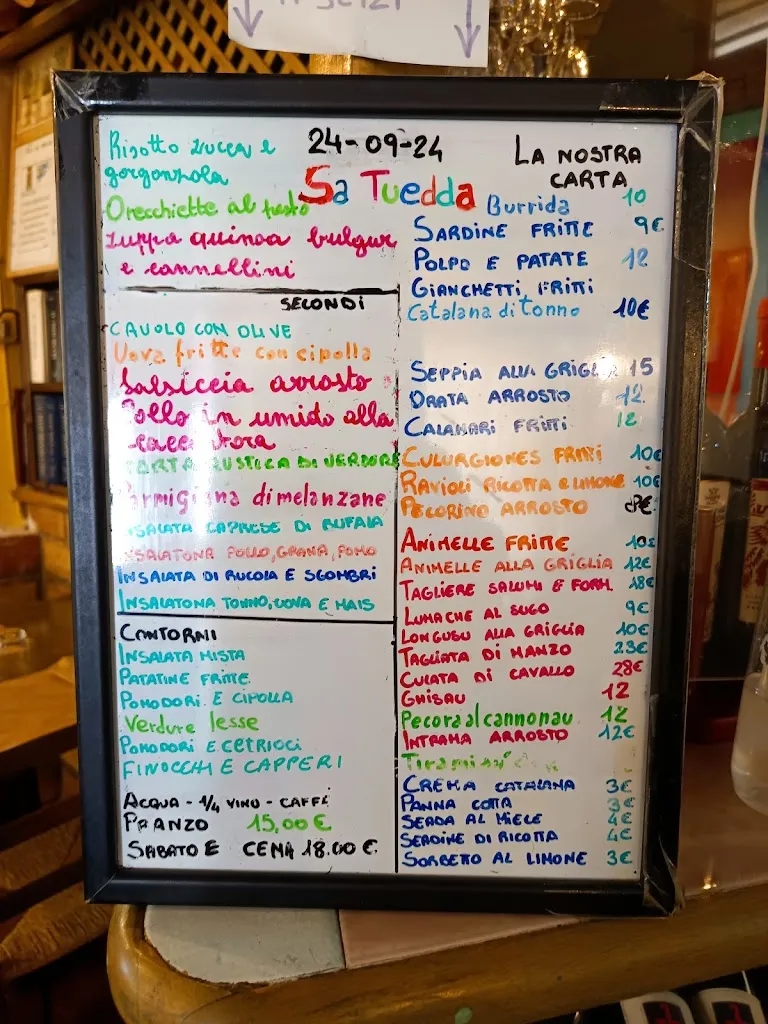 24-09-24
Sa Tuedda
Risotto zucca e
gorgonzola
Orecchiette al pesto
zuppa quinoa bulgur
e cannellini
SECONDI
CAVOLO CON OLIVE
Uova fritte con cipolla
Salsiccia arrosto
Pollo in umido alla
cacciatora
TORTA RUSTICA DI VERDURE
Parmigiana di melanzane
INSALATA CAPRESE DI BUFALA
INSALATONA POLLO, GRANA, POMO
INSALATA DI RUCOLA E SGOMBRI
INSALATONA TONNO, UOVA E MAIS
CONTORNI
INSALATA MISTA
PATATINE FRITTE
POMODORI E CIPOLLA
Verdure lesse
POMODORI E CETRIOLI
FINOCCHI E CAPPERI
ACQUA - 1/4 VINO - CAFFÈ
PRANZO 15,00 €
SABATO E CENA 18.00 €
LA NOSTRA
CARTA
Burrida 10
SARDINE FRITTE 9€
POLPO E PATATE 12
GIANCHETTI FRITTI
Catalana di tonno 10€
SEPPIA ALLA GRIGLIA 15
ORATA ARROSTO 12
CALAMARI FRITTI 12
CULURGIONES FRITTI 10€
RAVIOLI RICOTTA E LIMONE 10€
PECORINO ARROSTO 8€
ANIMELLE FRITTE 10€
ANIMELLE ALLA GRIGLIA 12€
TAGLIERE SALUMI E FORM. 18€
LUMACHE AL SUGO 9€
LONGUSU ALLA GRIGLIA 10€
TAGLIATA DI MANZO 23€
CULATA DI CAVALLO 28€
GHISAU 12
Pecora al cannonau 12
INTRAMA ARROSTO 12€
Tiramisù
CREMA CATALANA 3€
PANNA COTTA 3€
SEADA AL MIELE 4€
SEADINE DI RICOTTA 4€
SORBETTO AL LIMONE 3€